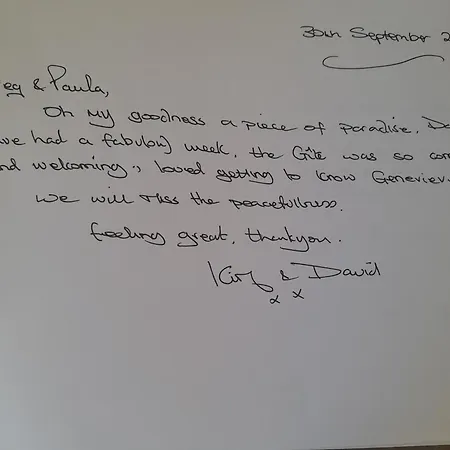 30th September 2
eg & Paula,
Oh my goodness a piece of paradise. Da
we had a fabulous week, the Gîte was so com
nd welcoming, loved getting to know Geneviev
we will miss the peacefullness.
feeling great, thankyou.
& David
x x